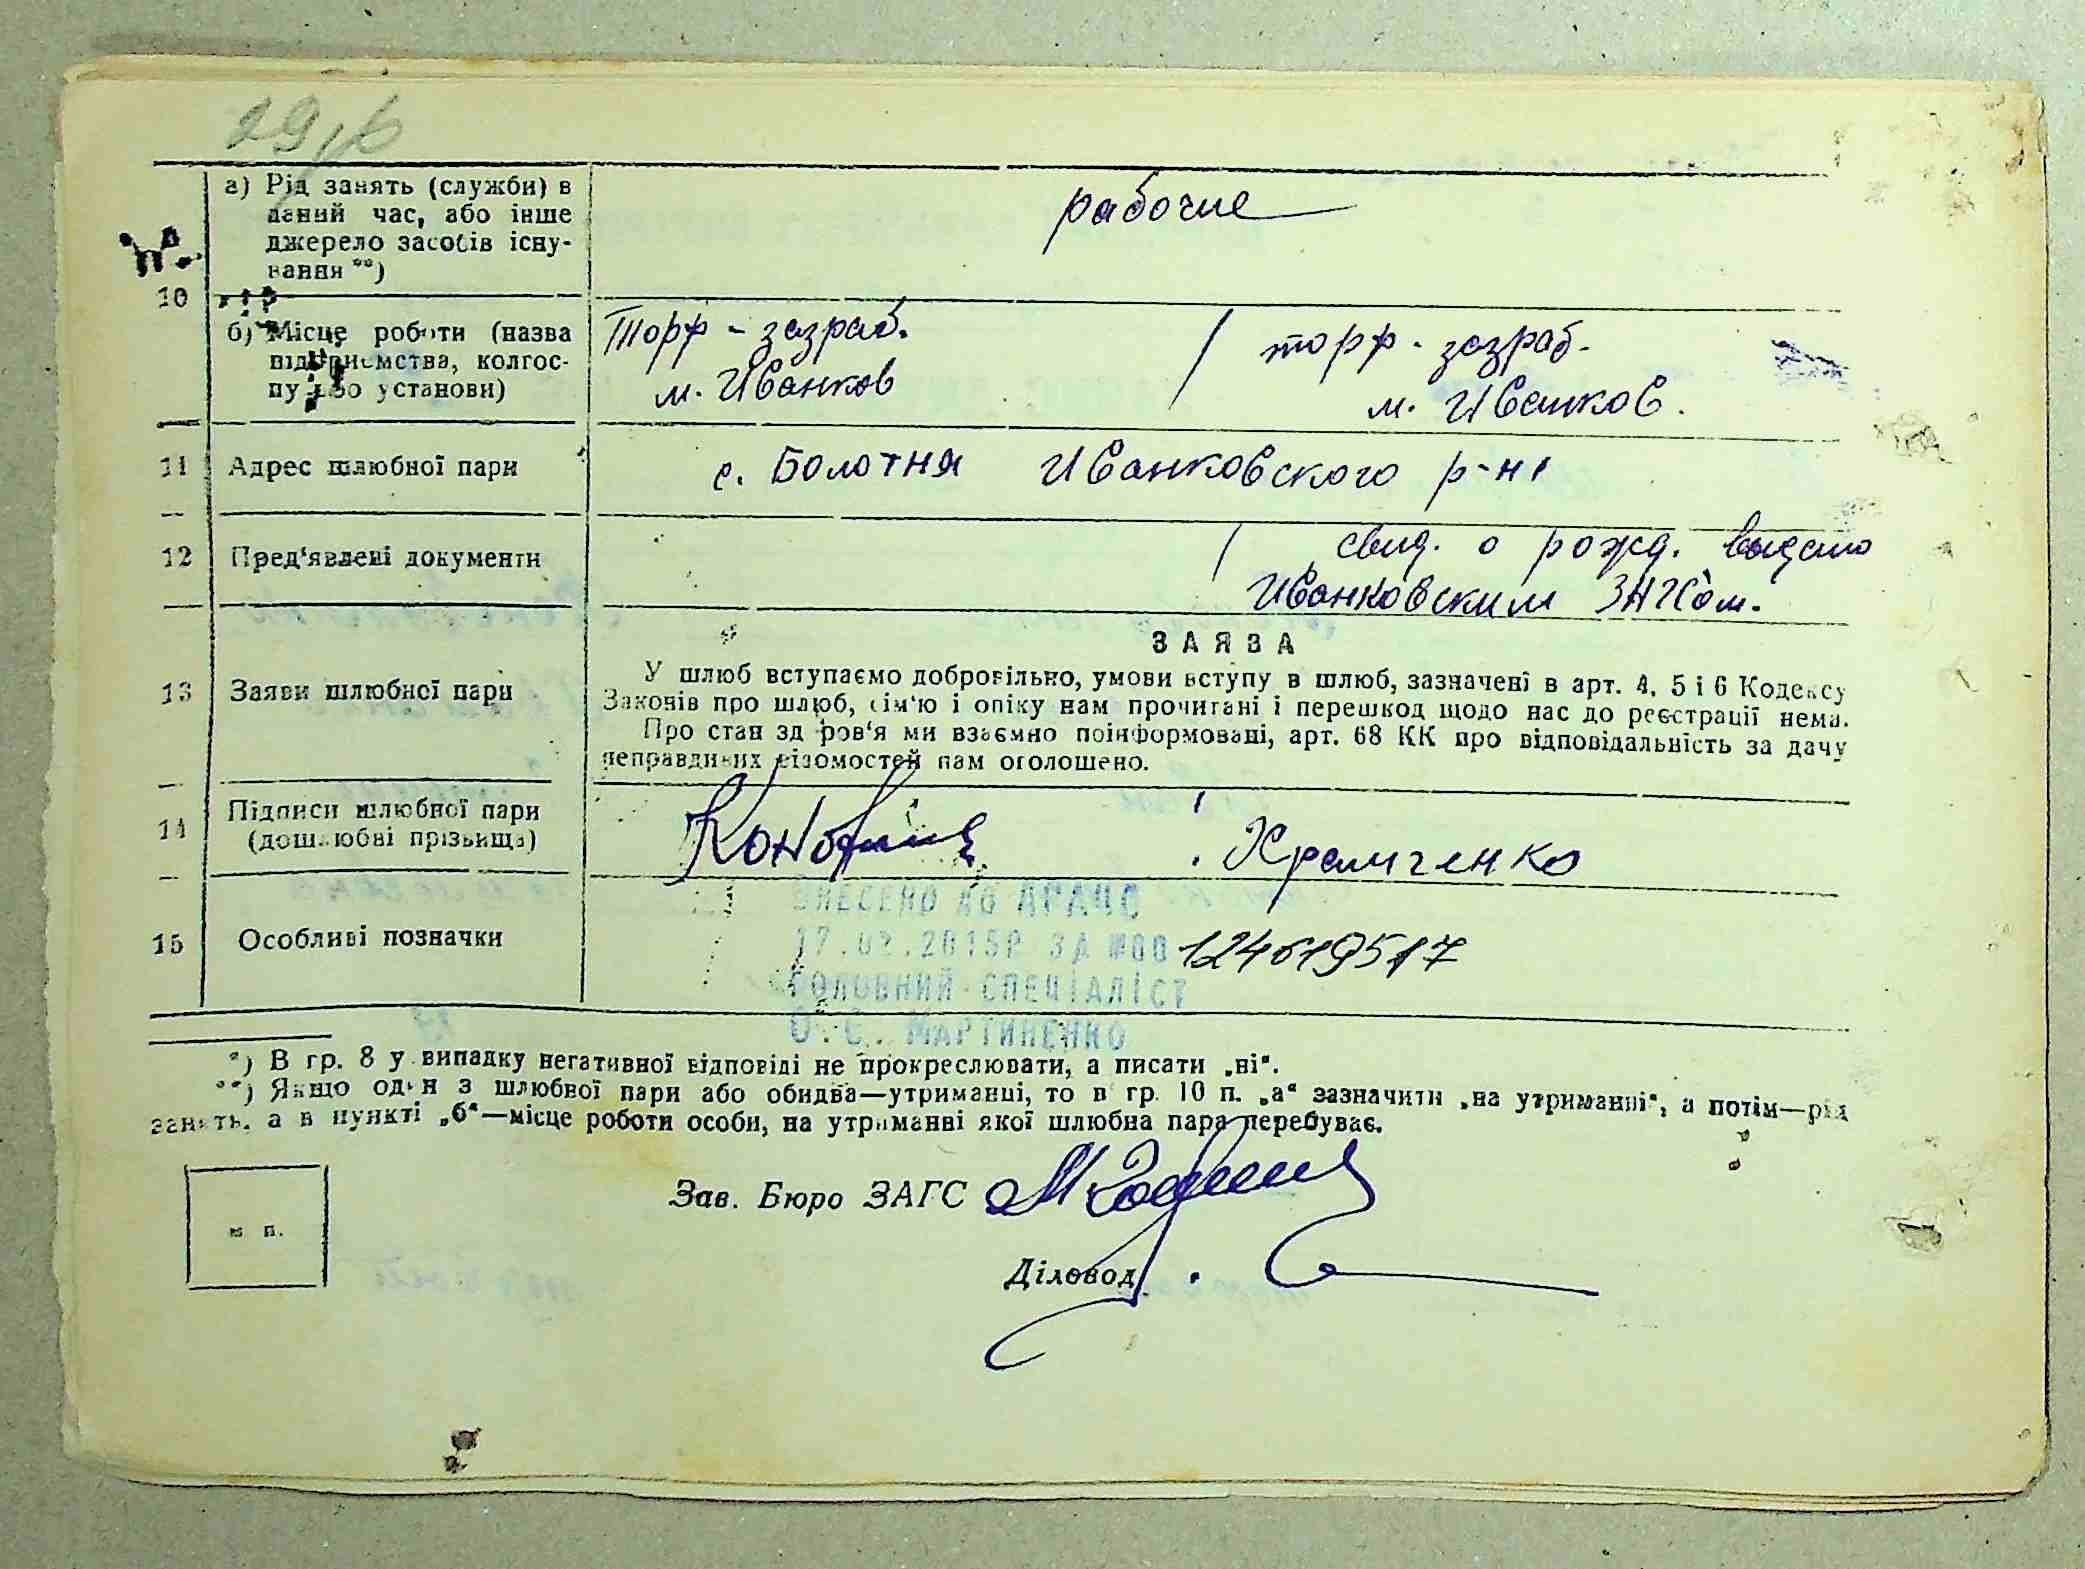 29/б
10
а) Рід занять (служби) в
даний час, або інше
джерело засобів існу-
вання **)
рабочие
б) Місце роботи (назва
підприємства, колгос-
пу або установи)
Торф-зазраб.
м. Иванков
торф-зазраб.
м. Иванков.
11 Адрес шлюбної пари
с. Болотня Иванковского р-н
12 Пред'явлені документи
свид. о рожд. выдано
Иванковским ЗАГСом.
13 Заяви шлюбної пари
ЗАЯВА
У шлюб вступаємо добровільно, умови вступу в шлюб, зазначені в арт. 4, 5 і 6 Кодексу
Законів про шлюб, сім'ю і опіку нам прочитані і перешкод щодо нас до реєстрації нема.
Про стан здоров'я ми взаємно поінформовані, арт. 68 КК про відповідальність за дачу
неправдивих відомостей нам оголошено.
14 Підписи шлюбної пари
(дошлюбні прізвища)
Храмченко
15 Особливі позначки
ВНЕСЕНО ДО ДРАЦС
17.02.2015Р ЗА №00 124619517
ГОЛОВНИЙ СПЕЦІАЛІСТ
О.Є. МАРТИНЕНКО
*) В гр. 8 у випадку негативної відповіді не прокреслювати, а писати „ні“.
**) Якщо один з шлюбної пари або обидва—утриманці, то в гр. 10 п. „а“ зазначити „на утриманні“, а потім—рід
занять, а в пункті „б“—місце роботи особи, на утриманні якої шлюбна пара перебуває.
Зав. Бюро ЗАГС
м. п.
Діловод